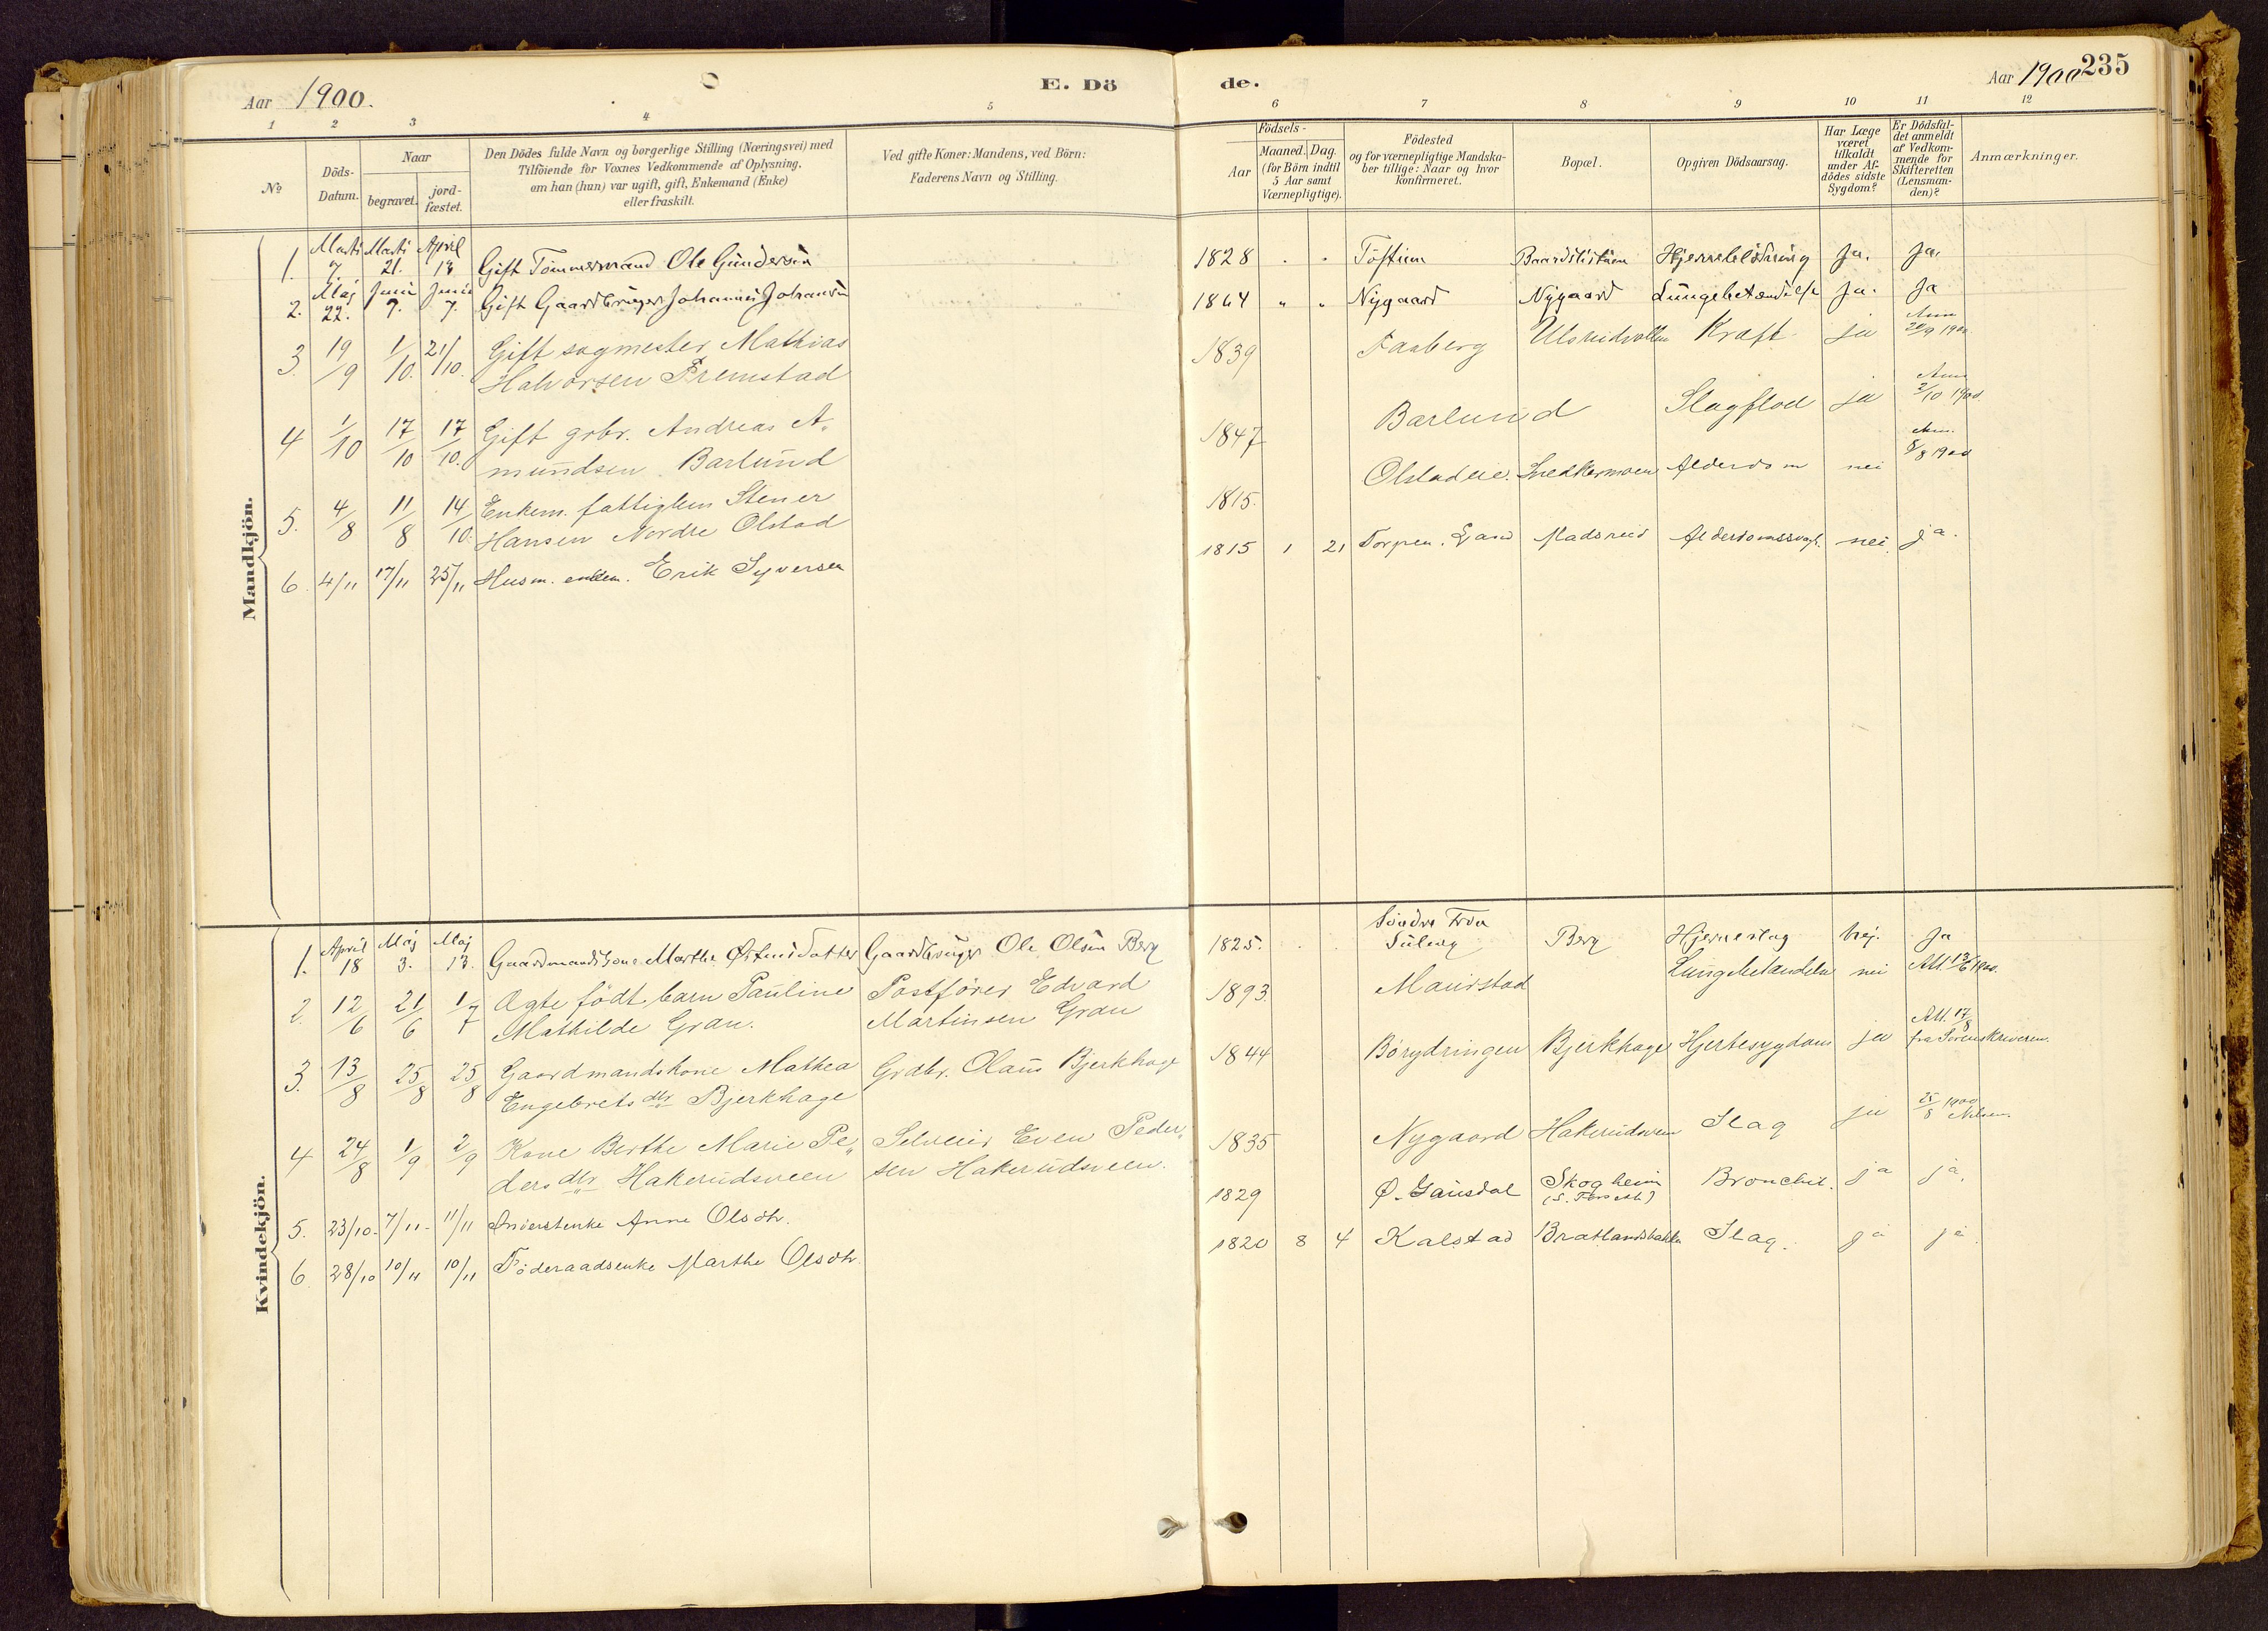 Aar 1900.
E. Dö
de.
Aar 1900
235
1 2 3 4 5 6 7 8 9 10 11 12
№
Döds-
Datum.
Naar
begravet.
jord-
fæstet.
Den Dödes fulde Navn og borgerlige Stilling (Næringsvei) med
Tilföiende for Voxnes Vedkommende af Oplysning,
om han (hun) var ugift, gift, Enkemand (Enke)
eller fraskilt.
Ved gifte Koner: Mandens, ved Börn:
Faderens Navn og Stilling.
Födsels-
Aar
Maaned. Dag.
(for Börn indtil
5 Aar samt
Værnepligtige).
Födested
og for værnepligtige Mandska-
ber tillige: Naar og hvor
konfirmeret.
Bopæl.
Opgiven Dödsaarsag.
Har Læge
været
tilkaldt
under Af-
dödes sidste
Sygdom?
Er Dödsfal-
det anmeldt
af Vedkom-
mende for
Skifteretten
(Lensman-
den)?
Anmærkninger.
Mandkjön.
Marts Marts April
1. 7. 21. 13 Gift Tømmermand Ole Gundersen 1828 Töftum Hjerneblødning Ja. Ja.
Maj Juni Juni
2. 22. 7. 7. Gift Gaardbruger Johannes Johansen 1864 " " Nygaard Nygaard Lungebetændelse Ja. Ja
3. 19/9 1/10. 21/10. Gift sagmester Mathias
Halvorsen Fremstad 1839 Faaberg Kræft ja Anm
1900
4 1/10 17/10 17/10. Gift grbr. Andreas A-
mundsen Barlund 1847 Barlund Slagflod ja Anm
2/10 1900
5. 4/8 11/8 14/10. Enkem. fattiglem Stener
Hansen Nordre Olstad 1815. Snedkermoen Alderdom nei Anm.
8/8 1900
6. 4/11 17/11 25/11 Husm. enkem. Erik Syversen 1815 1 21 Torpen. Madsrud nei. ja.
Kvindekjön.
April Maj Maj
1. 18 3. 13. Gaardmandskone Marthe Østensdatter Gaardbruger Ole Olsen Berg 1825. Søndre Fron
Berg Hjerneslag Nej. Ja
2. 12/6 21/6 1/7 Ægte født barn Pauline
Mathilde Grau. Postfører Edvard
Martinsen Grau 1893. Maurstad nei Att. 13/6 1900.
3. 13/8 25/8 25/8 Gaardmandskone Mathea
Engebretsdtr Bjerkhage Grdbr. Olaus Bjerkhage 1844 Børydningen Bjerkhage Hjertesygdom ja Att. 17/8
fra Sorenskriveren.
4 24/8 1/9 2/9 Kone Berthe Marie Pe-
dersdtr Hakerudsveen Selveier Even Peder-
sen Hakerudsveen. 1835 Nygaard Hakerudsveen Slag ja 25/8 1900
5. 23/10. 7/11. 11/11 Inderstenke Anne Olsdtr. 1829 Ø. Gausdal Skogheim Bronchit. ja ja.
6. 28/10 10/11 10/11 Föderaadsenke Marthe Olsdtr. 1820 8 4 Kalstad Bratlandsbakken Slag. ja ja.